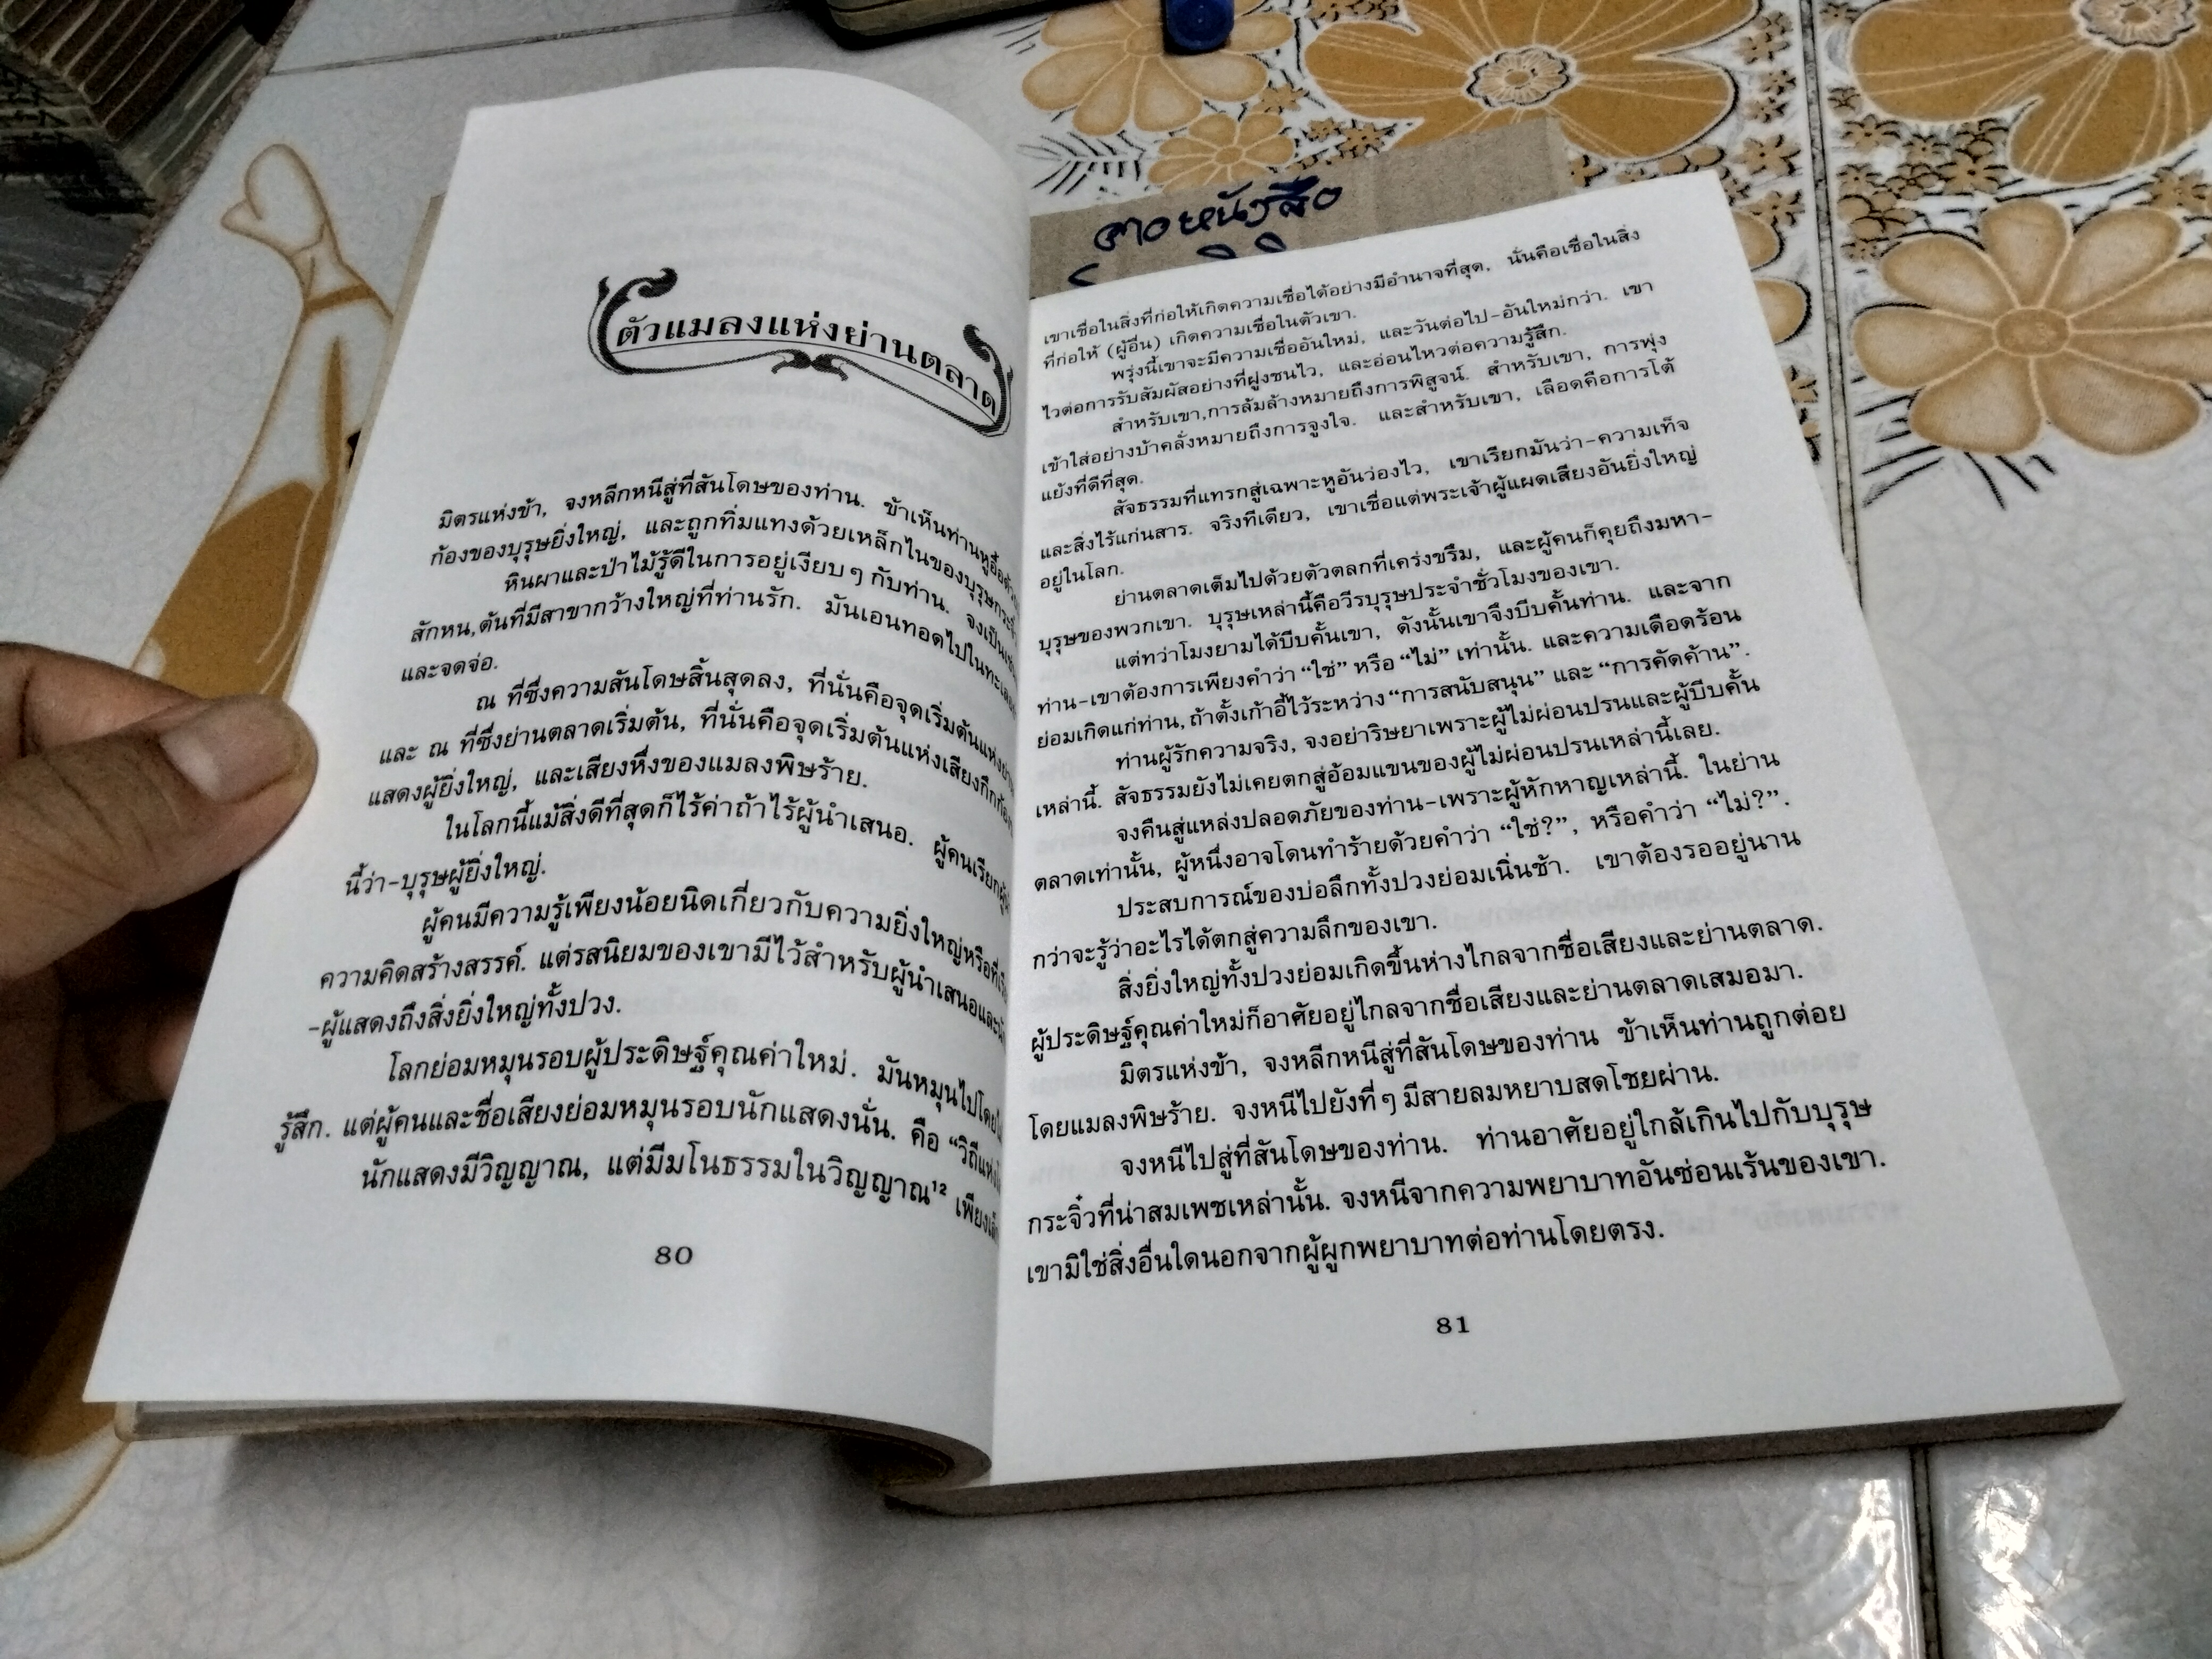 ตัวแมลงแห่งย่านตลาด
มิตรแห่งข้า, จงหลีกหนีสู่ที่สันโดษของท่าน. ข้าเห็นท่านหูอื้อด้วย
ก้องของบุรุษยิ่งใหญ่, และถูกทิ่มแทงด้วยเหล็กไนของบุรุษ
หินผาและป่าไม้รู้ดีในการอยู่เงียบๆ กับท่าน. จงเป็น
สักหน,ต้นที่มีสาขากว้างใหญ่ที่ท่านรัก. มันเอนทอดไปในทะเล
และจดจ่อ.
ณ ที่ซึ่งความสันโดษสิ้นสุดลง, ที่นั่นคือจุดเริ่มต้นแห่งย่าน
และ ณ ที่ซึ่งย่านตลาดเริ่มต้น, ที่นั่นคือจุดเริ่มต้นแห่งเสียงกึกก้อง
แสดงผู้ยิ่งใหญ่, และเสียงหึ่งของแมลงพิษร้าย.
ในโลกนี้แม้สิ่งดีที่สุดก็ไร้ค่าถ้าไร้ผู้นำเสนอ. ผู้คนเรียก
นี้ว่า-บุรุษผู้ยิ่งใหญ่.
ผู้คนมีความรู้เพียงน้อยนิดเกี่ยวกับความยิ่งใหญ่หรือที่
ความคิดสร้างสรรค์. แต่รสนิยมของเขามีไว้สำหรับผู้นำเสนอและ
-ผู้แสดงถึงสิ่งยิ่งใหญ่ทั้งปวง.
โลกย่อมหมุนรอบผู้ประดิษฐ์คุณค่าใหม่. มันหมุนไปโดย
รู้สึก. แต่ผู้คนและชื่อเสียงย่อมหมุนรอบนักแสดงนั่น. คือ “วิถีแห่ง
นักแสดงมีวิญญาณ, แต่มีมโนธรรมในวิญญาณ¹² เพียง
80
จาอหนังสือ
เขาเชื่อในสิ่งที่ก่อให้เกิดความเชื่อได้อย่างมีอำนาจที่สุด, นั่นคือเชื่อในสิ่ง
ที่ก่อให้ (ผู้อื่น) เกิดความเชื่อในตัวเขา.
พรุ่งนี้เขาจะมีความเชื่ออันใหม่, และวันต่อไป-อันใหม่กว่า. เขา
ไวต่อการรับสัมผัสอย่างที่ฝูงชนไว, และอ่อนไหวต่อความรู้สึก.
สำหรับเขา,การล้มล้างหมายถึงการพิสูจน์. สำหรับเขา, การพุ่ง
เข้าใส่อย่างบ้าคลั่งหมายถึงการจูงใจ. และสำหรับเขา, เลือดคือการโต้
แย้งที่ดีที่สุด.
สัจธรรมที่แทรกสู่เฉพาะหูอันว่องไว, เขาเรียกมันว่า-ความเท็จ
และสิ่งไร้แก่นสาร. จริงทีเดียว, เขาเชื่อแต่พระเจ้าผู้แผดเสียงอันยิ่งใหญ่
อยู่ในโลก.
ย่านตลาดเต็มไปด้วยตัวตลกที่เคร่งขรึม, และผู้คนก็คุยถึงมหา-
บุรุษของพวกเขา. บุรุษเหล่านี้คือวีรบุรุษประจำชั่วโมงของเขา.
แต่ทว่าโมงยามได้บีบคั้นเขา, ดังนั้นเขาจึงบีบคั้นท่าน. และจาก
ท่าน-เขาต้องการเพียงคำว่า “ใช่” หรือ “ไม่” เท่านั้น. และความเดือดร้อน
ย่อมเกิดแก่ท่าน,ถ้าตั้งเก้าอี้ไว้ระหว่าง“การสนับสนุน” และ “การคัดค้าน”.
ท่านผู้รักความจริง, จงอย่าริษยาเพราะผู้ไม่ผ่อนปรนและผู้บีบคั้น
เหล่านี้. สัจธรรมยังไม่เคยตกสู่อ้อมแขนของผู้ไม่ผ่อนปรนเหล่านี้เลย.
จงคืนสู่แหล่งปลอดภัยของท่าน-เพราะผู้หักหาญเหล่านี้. ในย่าน
ตลาดเท่านั้น, ผู้หนึ่งอาจโดนทำร้ายด้วยคำว่า “ใช่?”, หรือคำว่า “ไม่?”.
ประสบการณ์ของบ่อลึกทั้งปวงย่อมเนิ่นช้า. เขาต้องรออยู่นาน
กว่าจะรู้ว่าอะไรได้ตกสู่ความลึกของเขา.
สิ่งยิ่งใหญ่ทั้งปวงย่อมเกิดขึ้นห่างไกลจากชื่อเสียงและย่านตลาด.
ผู้ประดิษฐ์คุณค่าใหม่ก็อาศัยอยู่ไกลจากชื่อเสียงและย่านตลาดเสมอมา.
มิตรแห่งข้า, จงหลีกหนีสู่ที่สันโดษของท่าน ข้าเห็นท่านถูกต่อย
โดยแมลงพิษร้าย. จงหนีไปยังที่ๆ มีสายลมหยาบสดโชยผ่าน.
จงหนีไปสู่ที่สันโดษของท่าน. ท่านอาศัยอยู่ใกล้เกินไปกับบุรุษ
กระจิ๋วที่น่าสมเพชเหล่านั้น. จงหนีจากความพยาบาทอันซ่อนเร้นของเขา.
เขามิใช่สิ่งอื่นใดนอกจากผู้ผูกพยาบาทต่อท่านโดยตรง.
81